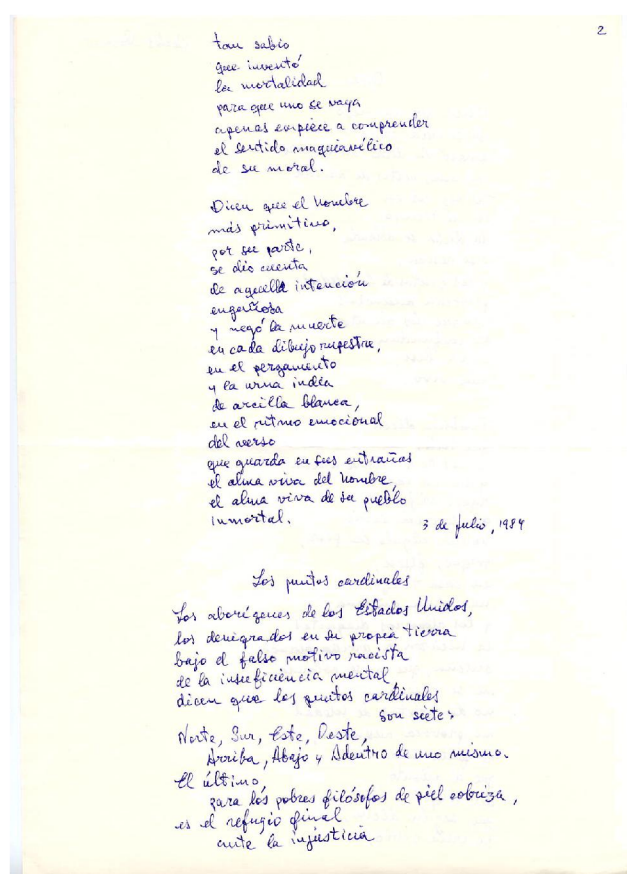 2
tan sabio
que inventó
la mortalidad
para que uno se vaya
apenas empiece a comprender
el sentido maquiavélico
de su moral.
Dicen que el hombre
más primitivo,
por su parte,
se dio cuenta
de aquella intención
engañosa
y negó la muerte
en cada dibujo rupestre,
en el pergamento
y la urna india
de arcilla blanca,
en el ritmo emocional
del verso
que guarda en sus entrañas
el alma viva del hombre,
el alma viva de su pueblo
inmortal.
3 de julio, 1984
Los puntos cardinales
Los aborígenes de los Estados Unidos,
los denigrados en su propia tierra
bajo el falso motivo racista
de la insuficiencia mental,
dicen que los puntos cardinales
son siete:
Norte, Sur, Este, Oeste,
Arriba, Abajo y Adentro de uno mismo.
El último,
para los pobres filósofos de piel cobriza,
es el refugio final
ante la injusticia